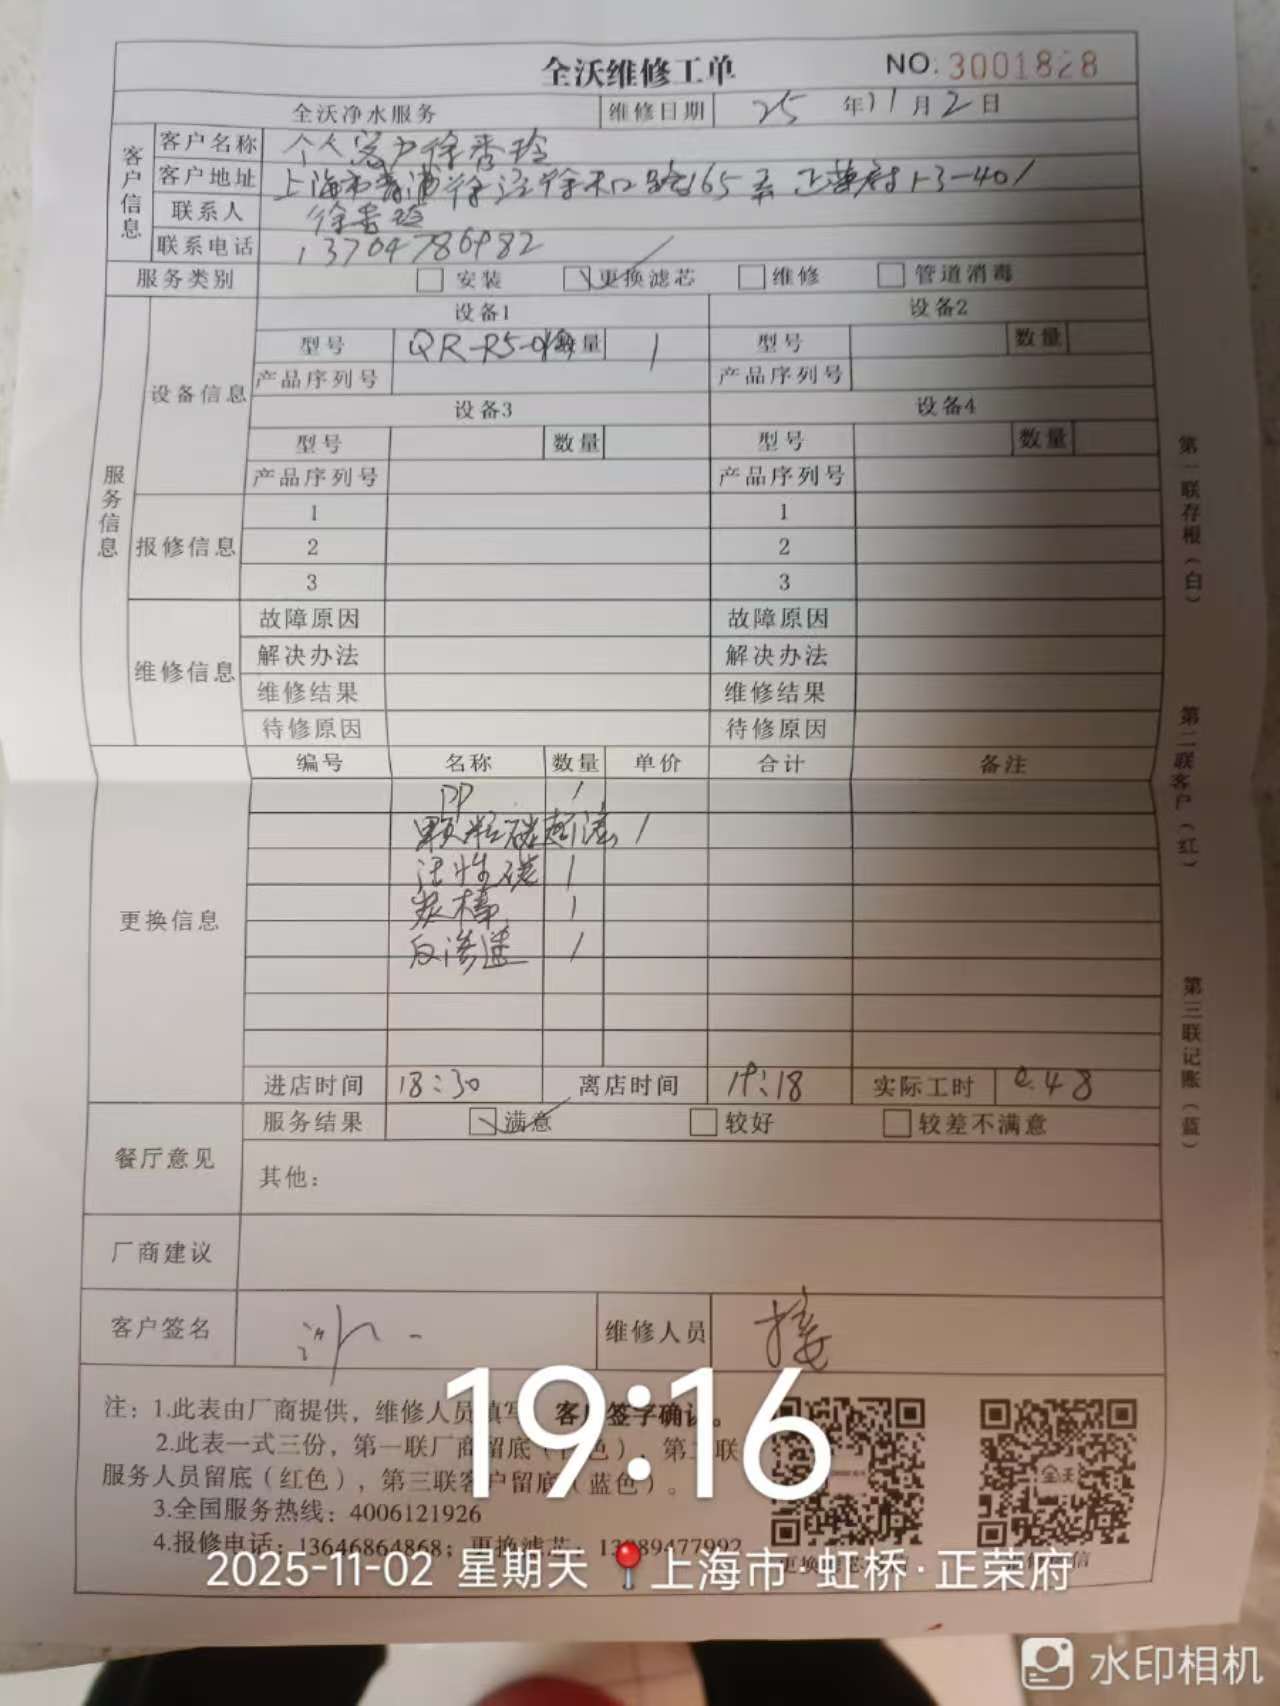 全沃维修工单 NO.3001828
全沃净水服务 维修日期 25 年 11 月 2 日
客户信息
客户名称 个人客户徐秀玲
客户地址 上海市青浦徐泾徐禾口路165弄正荣府13-401
联系人 徐秀玲
联系电话
服务类别 安装 更换滤芯 维修 管道消毒
服务信息
设备信息
设备1 设备2
型号 QR-R5- 数量 1 型号 数量
产品序列号 产品序列号
设备3 设备4
型号 数量 型号 数量
产品序列号 产品序列号
报修信息
1 1
2 2
3 3
维修信息
故障原因 故障原因
解决办法 解决办法
维修结果 维修结果
待修原因 待修原因
更换信息
编号 名称 数量 单价 合计 备注
PP 1
颗粒碳 1
活性碳 1
炭棒 1
反渗透 1
进店时间 18:30 离店时间 19:18 实际工时 0.48
餐厅意见
服务结果 满意 较好 较差不满意
其他：
厂商建议
客户签名 维修人员
注：1.此表由厂商提供，维修人员填写 客户签字确认。
2.此表一式三份，第一联厂商留底（白色）、第二联
服务人员留底（红色），第三联客户留底（蓝色）。
3.全国服务热线：4006121926
4.报修电话：13646864868；更换滤芯：
第一联存根（白）
第二联客户（红）
第三联记账（蓝）
19:16
2025-11-02 星期天 上海市·虹桥·正荣府
水印相机